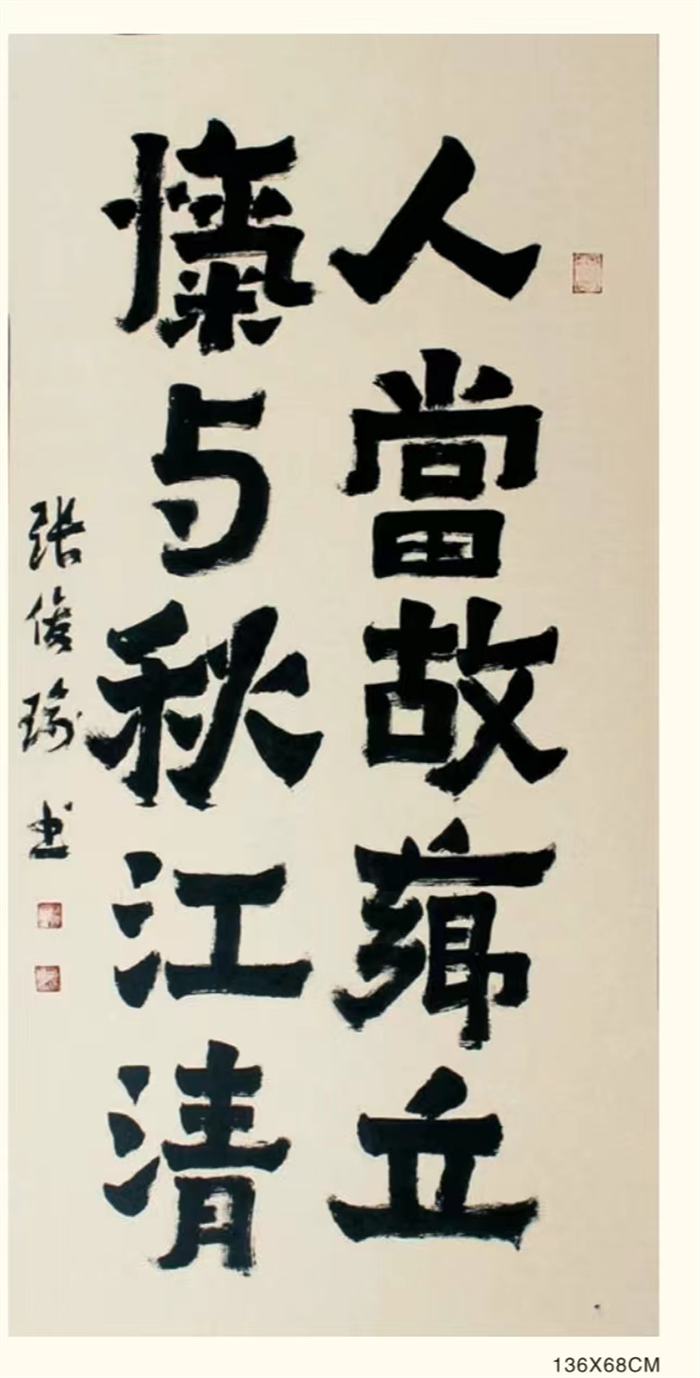 人當故鄉立
与秋江清
张俊瑜书
136X68CM